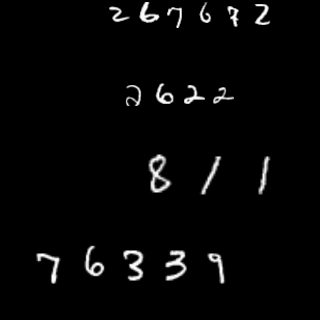 267672
2622
811
76339